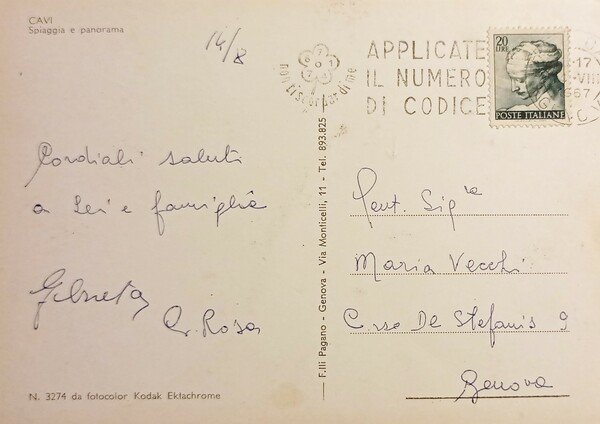 CAVI
Spiaggia e panorama
14/8
non ti scordar di me
APPLICATE
IL NUMERO
DI CODICE
20
LIRE
POSTE ITALIANE
-17
-VIII
967
Cordiali saluti
a Lei e famiglia
G. Rosa
F.lli Pagano - Genova - Via Monticelli, 11 - Tel. 893.825
Gent. Sig.ra
Maria Vecchi
C.rso De Stefanis 9
Genova
N. 3274 da fotocolor Kodak Ektachrome